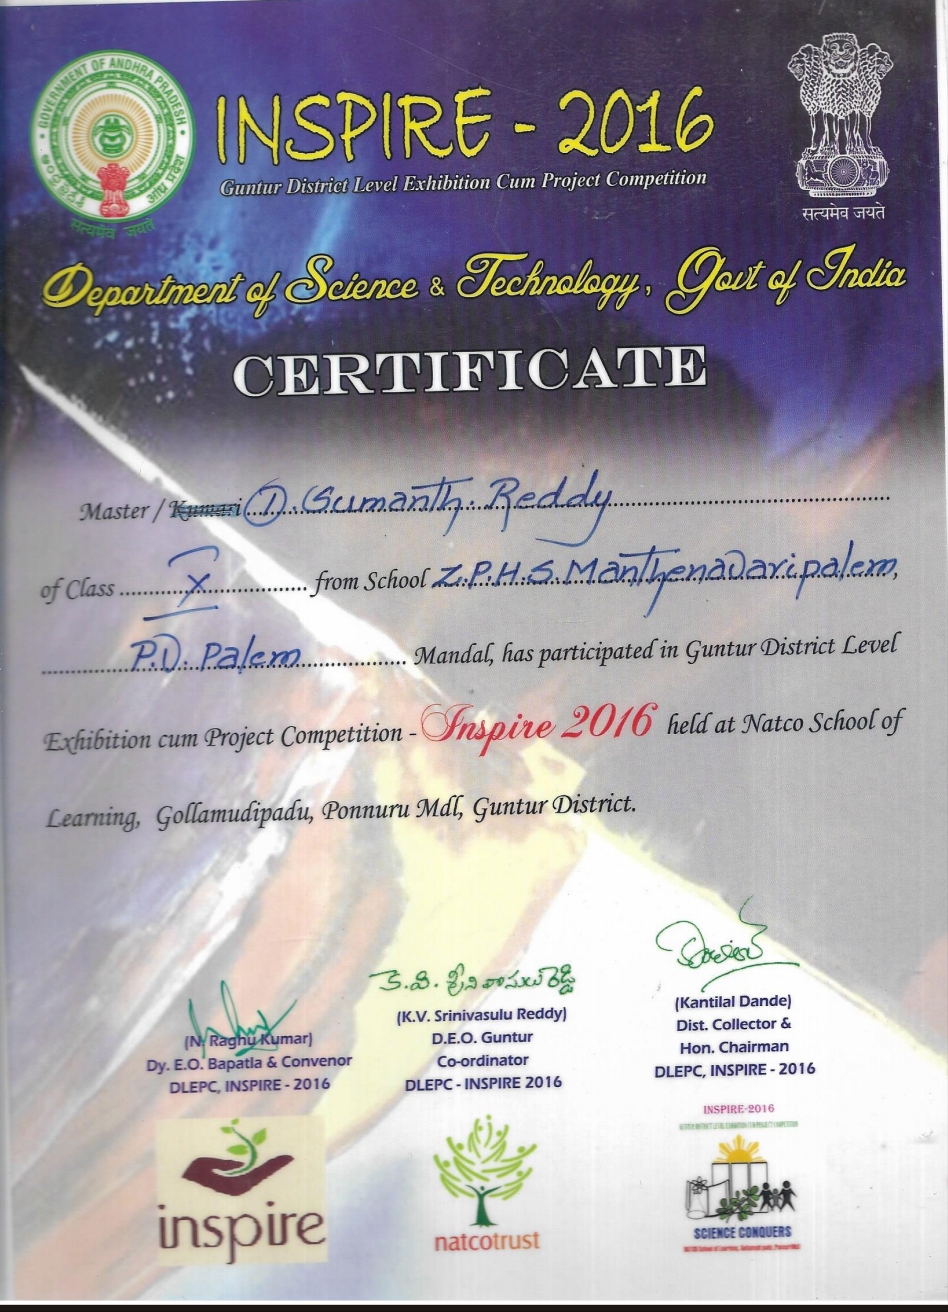 GOVERNMENT OF ANDHRA PRADESH
सत्यमेव जयते
सत्यमेव जयते
INSPIRE - 2016
Guntur District Level Exhibition Cum Project Competition
Department of Science & Technology, Govt of India
CERTIFICATE
Master / Kumari D. Sumanth. Reddy
of Class X from School Z.P.H.S. Manthenavaripalem,
P.V. Palem Mandal, has participated in Guntur District Level
Exhibition cum Project Competition - Inspire 2016 held at Natco School of
Learning, Gollamudipadu, Ponnuru Mdl, Guntur District.
(N. Raghu Kumar)
Dy. E.O. Bapatla & Convenor
DLEPC, INSPIRE - 2016
కె.వి. శ్రీనివాసులు రెడ్డి
(K.V. Srinivasulu Reddy)
D.E.O. Guntur
Co-ordinator
DLEPC - INSPIRE 2016
(Kantilal Dande)
Dist. Collector &
Hon. Chairman
DLEPC, INSPIRE - 2016
inspire
natcotrust
INSPIRE-2016
GUNTUR DISTRICT LEVEL EXHIBITION CUM PROJECT COMPETITION
SCIENCE CONQUERS